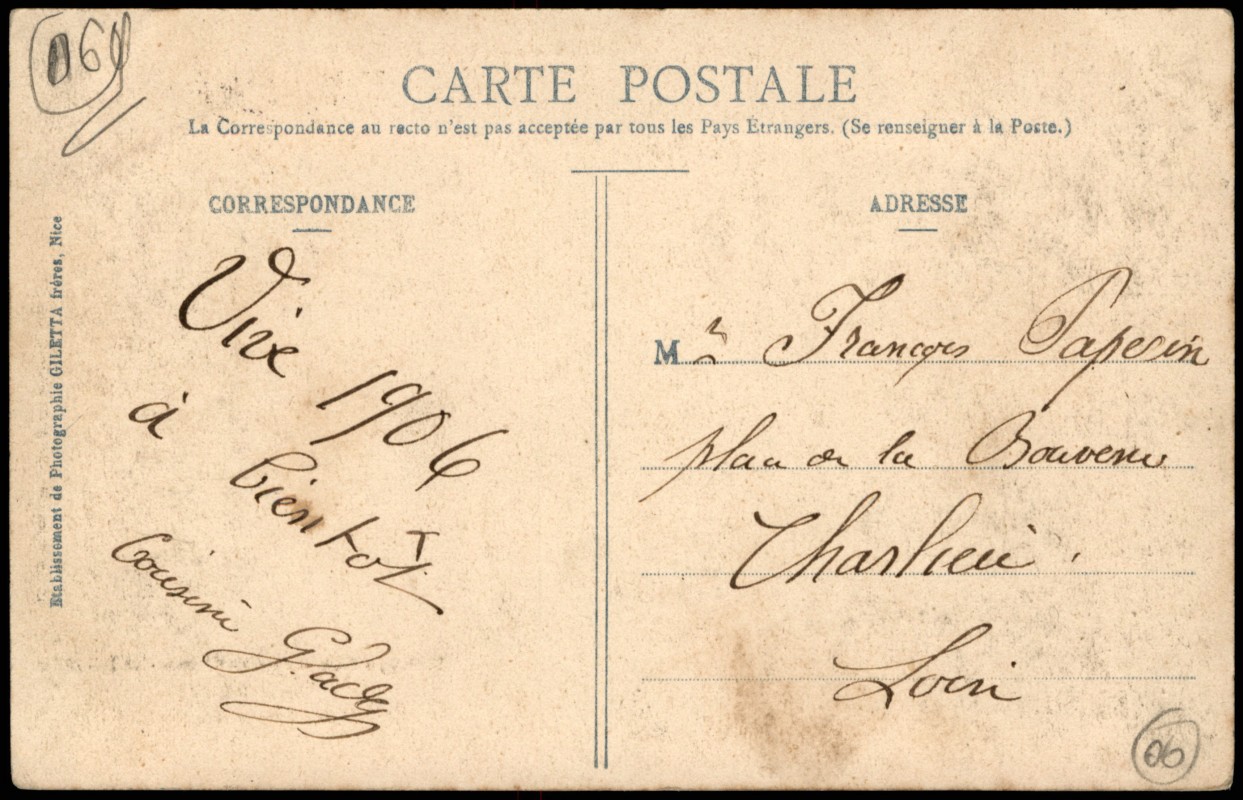 06
CARTE POSTALE
La Correspondance au recto n'est pas acceptée par tous les Pays Étrangers. (Se renseigner à la Poste.)
CORRESPONDANCE
Vive 1906
à
bientôt
Cousine
Etablissement de Photographie GILETTA frères, Nice
ADRESSE
Mr François
place de la Bouverie
Charlieu
Loire
06